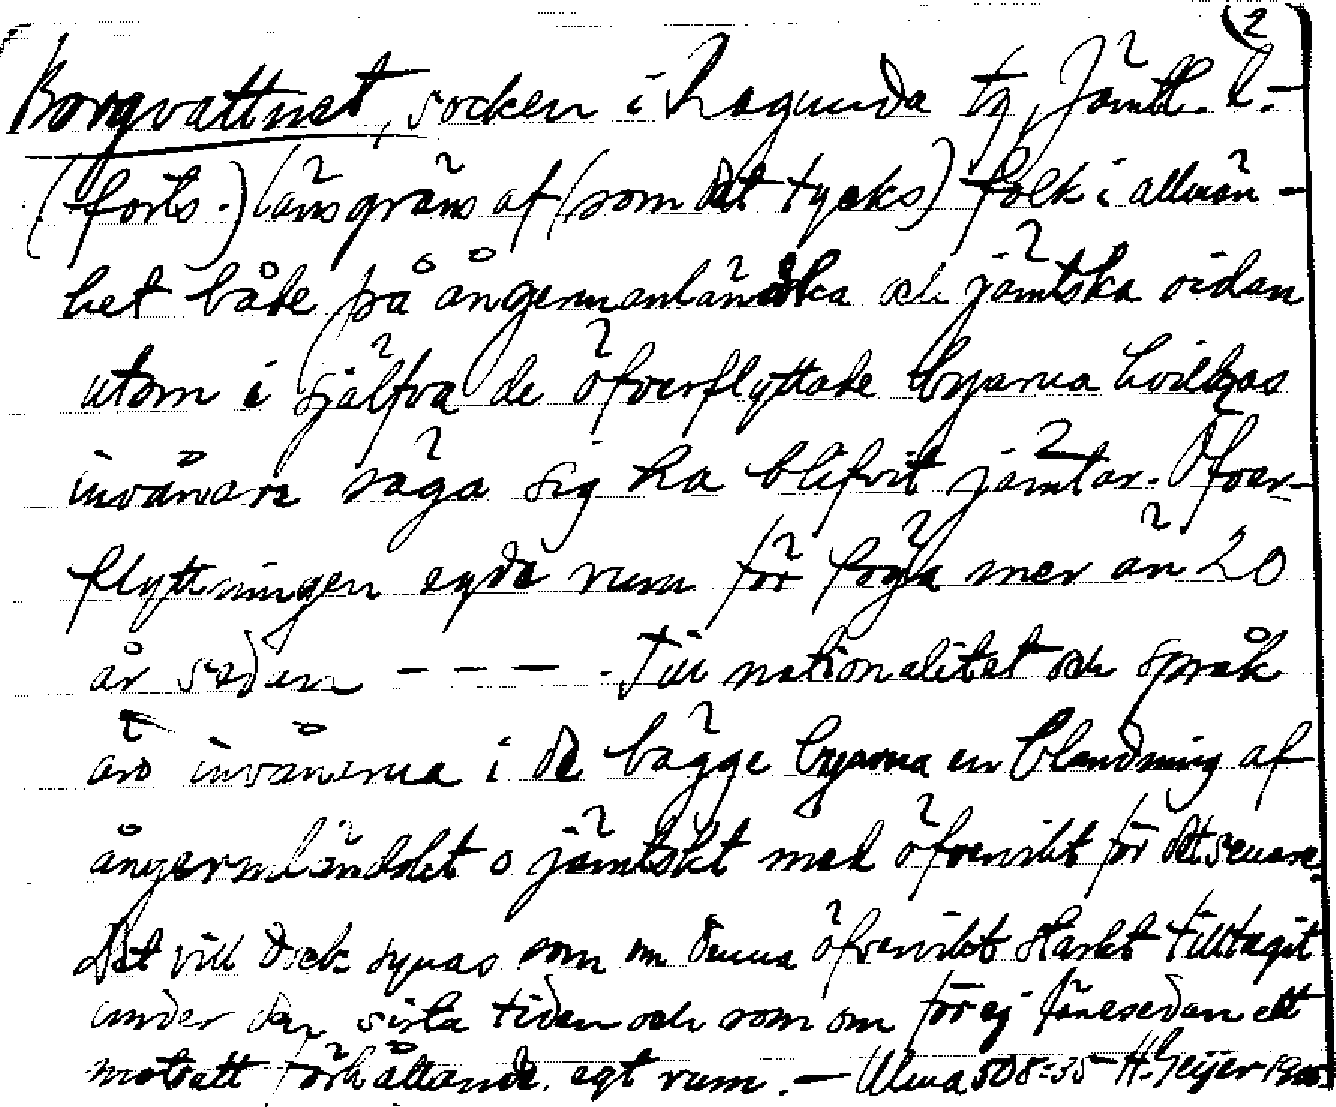 (2)
Borgvattnet, socken i Ragunda tg, Jämtl. l.-
(forts.) länsgräns af (som det tycks) folk i allmän-
het både på ångermanländska och jämtska sidan
utom i själfva de öfverflyttade byarna hvilkas
invånare säga sig ha blifvit jämtar. Öfver-
flyttningen egde rum för föga mer än 20
år sedan - - - - . Till nationalitet och språk
äro invånerna i de bägge byarna en blandning af
ångermländskt o jämtskt med öfvervikt för det senare.
Det vill dock synas som om denna öfvervikt starkt tilltagit
under den sista tiden och som om för ej länesedan ett
motsatt förhållande egt rum. — Ulma 508:35 H. Geijer